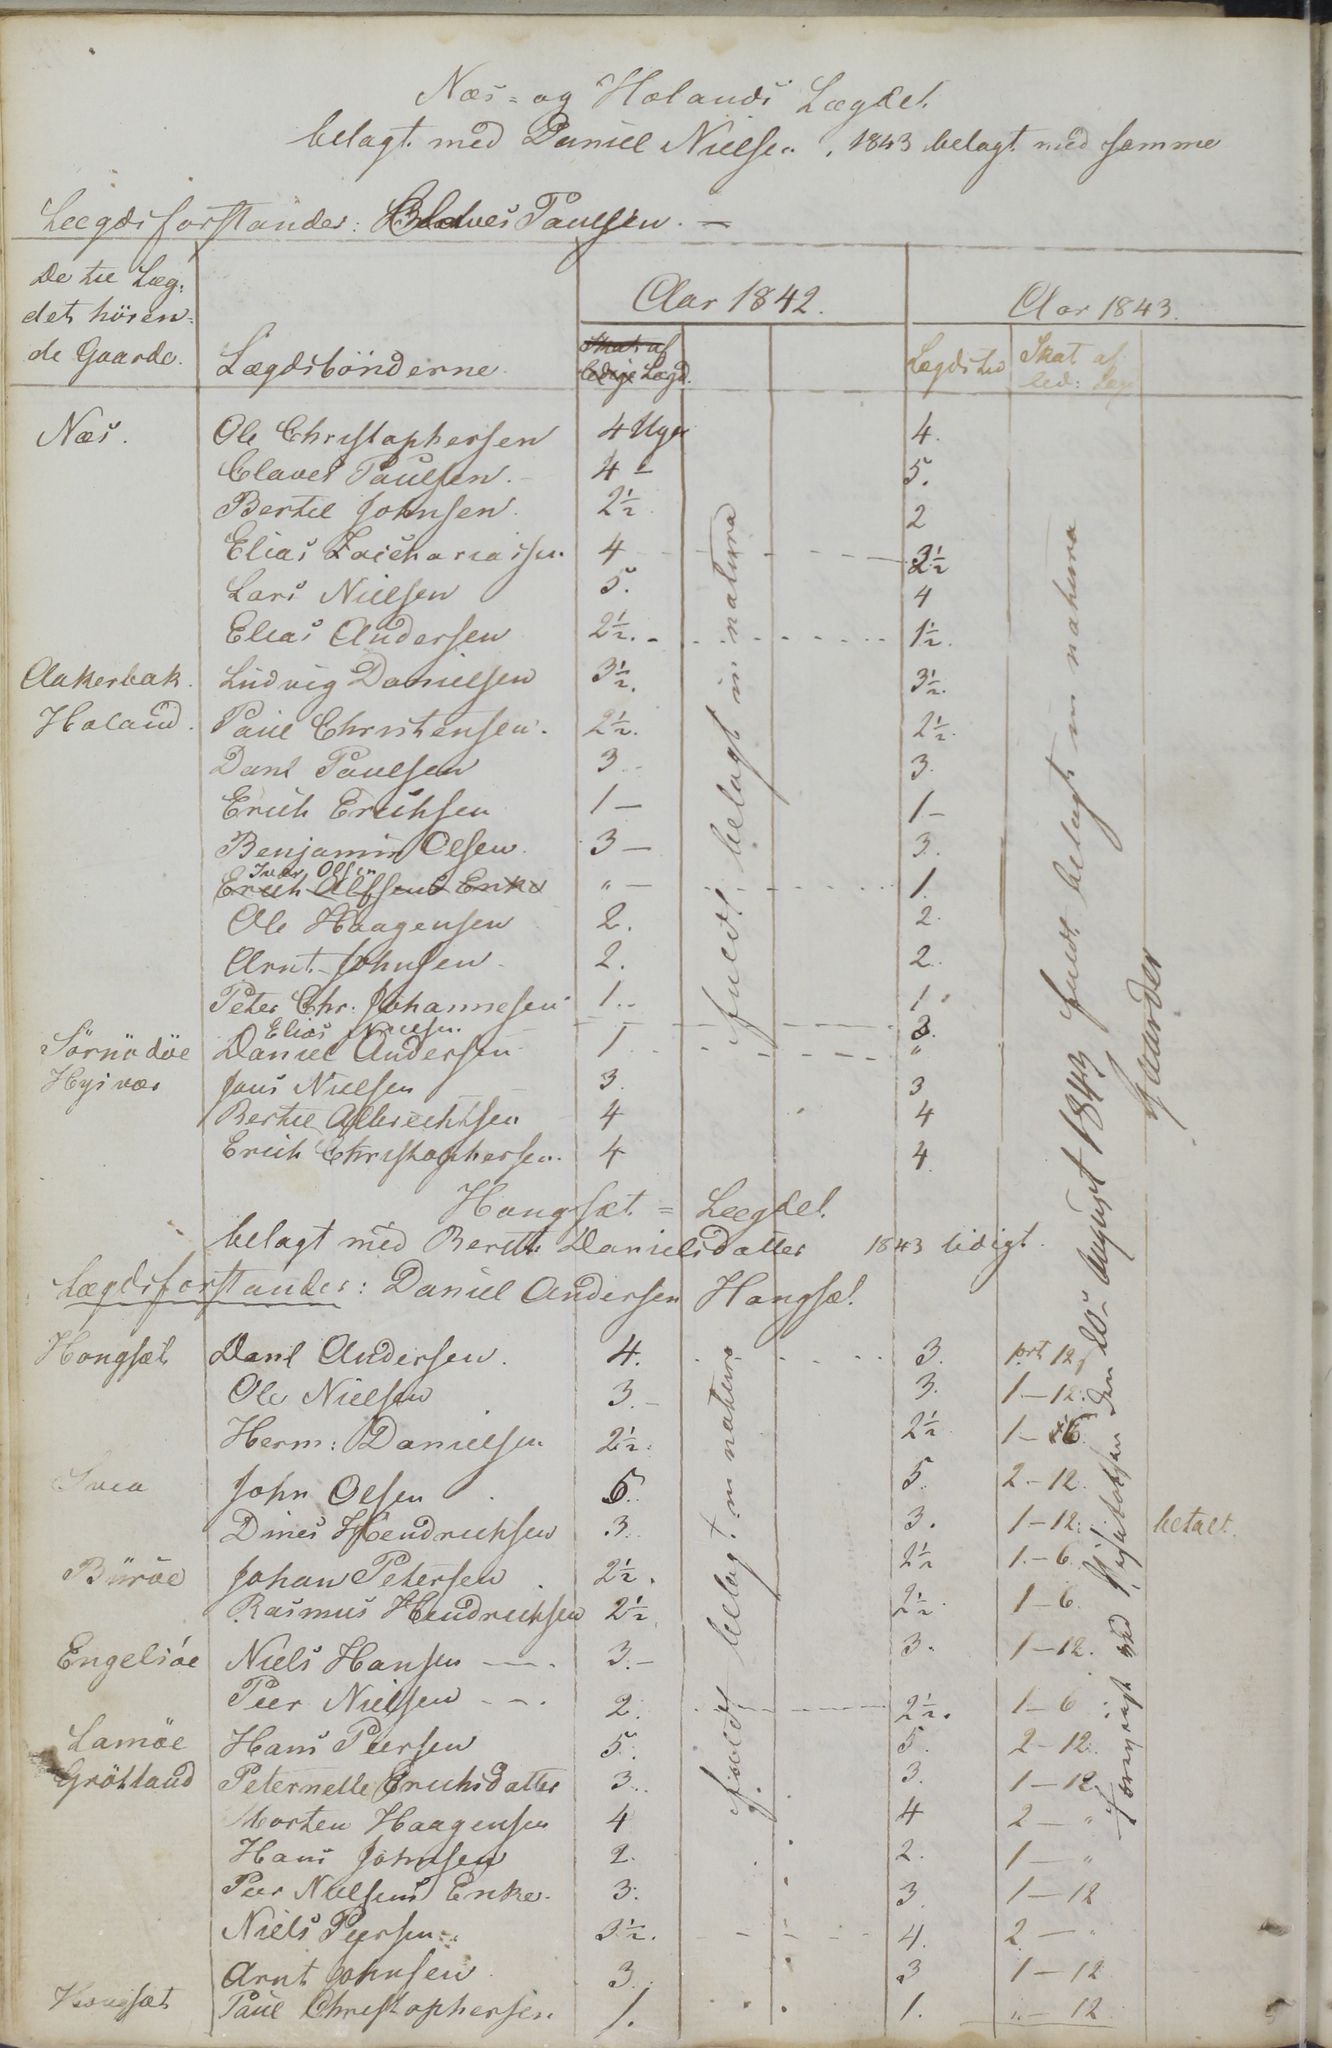 Næs- og Holands Lægdet
belagt med Daniel Nielsen. 1843 belagt med samme
Lægdsforstander: Claves Paulsen. —
De til Læg-
det hören-
de Gaarde.
Lægdsbönderne
Aar 1842.
Aar 1843.
Skat af
ledige Lægd.
Lægdstid
Skat af
led: Læg
Næs. Ole Christophersen 4 Uger 4.
Claves Paulsen. - 4 - 5.
Bertil Johnsen. 2½ 2
Elias Zachariassen 4 3½
Lars Nielsen 5. 4
Elias Andersen 2½. 1½.
Aakerbak. Ludvig Danielsen 3½. 3½.
Holand. Paul Christensen. 2½. 2½.
Danl Paulsen 3 3.
Erich Erichsen 1 — 1 -
Benjamin Olsen. 3 — 3.
Iver Olsen
Erich Alfsens Enke " — 1.
Ole Haagensen 2. 2.
Arnt Johnsen 2. 2.
Peter Chr. Johannesen 1.. 1.
Elias Nielsen. 3.
Sörnödöe Daniel Andersen 1 "
Hysvær Jens Nielsen 3. 3
Bertil Albrechtsen 4 4
Erich Christophersen. 4 4
fuldt belagt in natura
fuldt belagt in natura
Hongsæt = Lægdet.
belagt med Berith Danielsdatter 1843 ledigt.
Lægdsforstander: Daniel Andersen Hongsæt.
Hongsæt Danl Andersen. 4. 3. 1 ort 12 s
Ole Nielsen 3. - 3. 1 - 12.
Herm: Danielsen 2½. 2½ 1 - 6
John Olsen 5. 5. 2 - 12.
Dines Hendrichsen 3. 3. 1 - 12. betalt.
Büröe Johan Petersen 2½. 2½ 1. - 6.
Rasmus Hendrichsen 2½ 2½. 1 - 6.
Engelsöe Niels Hansen 3. - 3. 1 - 12.
Peer Nielsen 2. 2½. 1 - 6
Lamöe Hans Peersen 5. 5. 2 - 12.
Gröttland Peternelle Erichsdatter 3.. 3. 1 - 12
Morten Haagensen 4 4 2 - "
Hans Johnsen 2. 2. 1 — "
Peer Nielsens Enke. 3. 3. 1 - 12
Niels Peersen. 3½. 4. 2 — "
Arnt Johnsen 3. 3 1 - 12
Hongsæt Paul Christophersen 1. 1. " - 12.
fuldt belagt in natura
den 20 August 1843